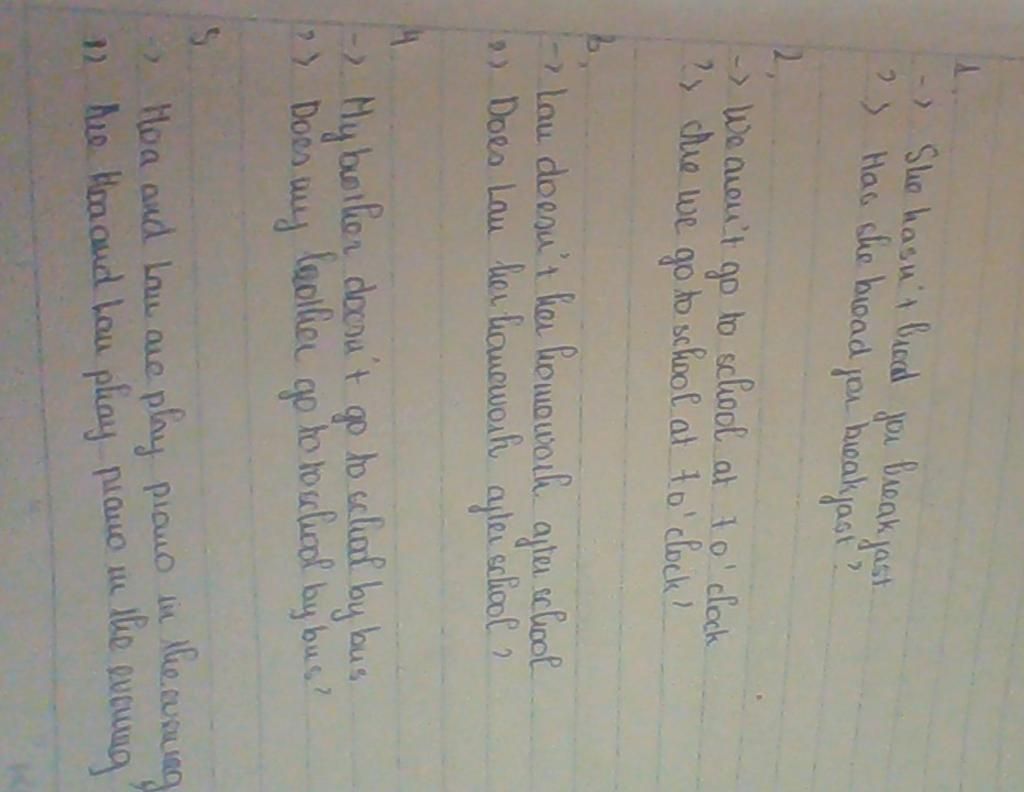 1,
-> She hasn't bread for breakfast
?> Has she bread for breakfast?
2,
-> We aren't go to school at 7 o'clock
?> Are we go to school at 7 o'clock?
3,
-> Lan doesn't her homework after school
?> Does Lan her homework after school?
4
-> My brother doesn't go to school by bus
?> Does my brother go to school by bus?
5
-> Hoa and Lan are play piano in the evening
?> Are Hoa and Lan play piano in the evening